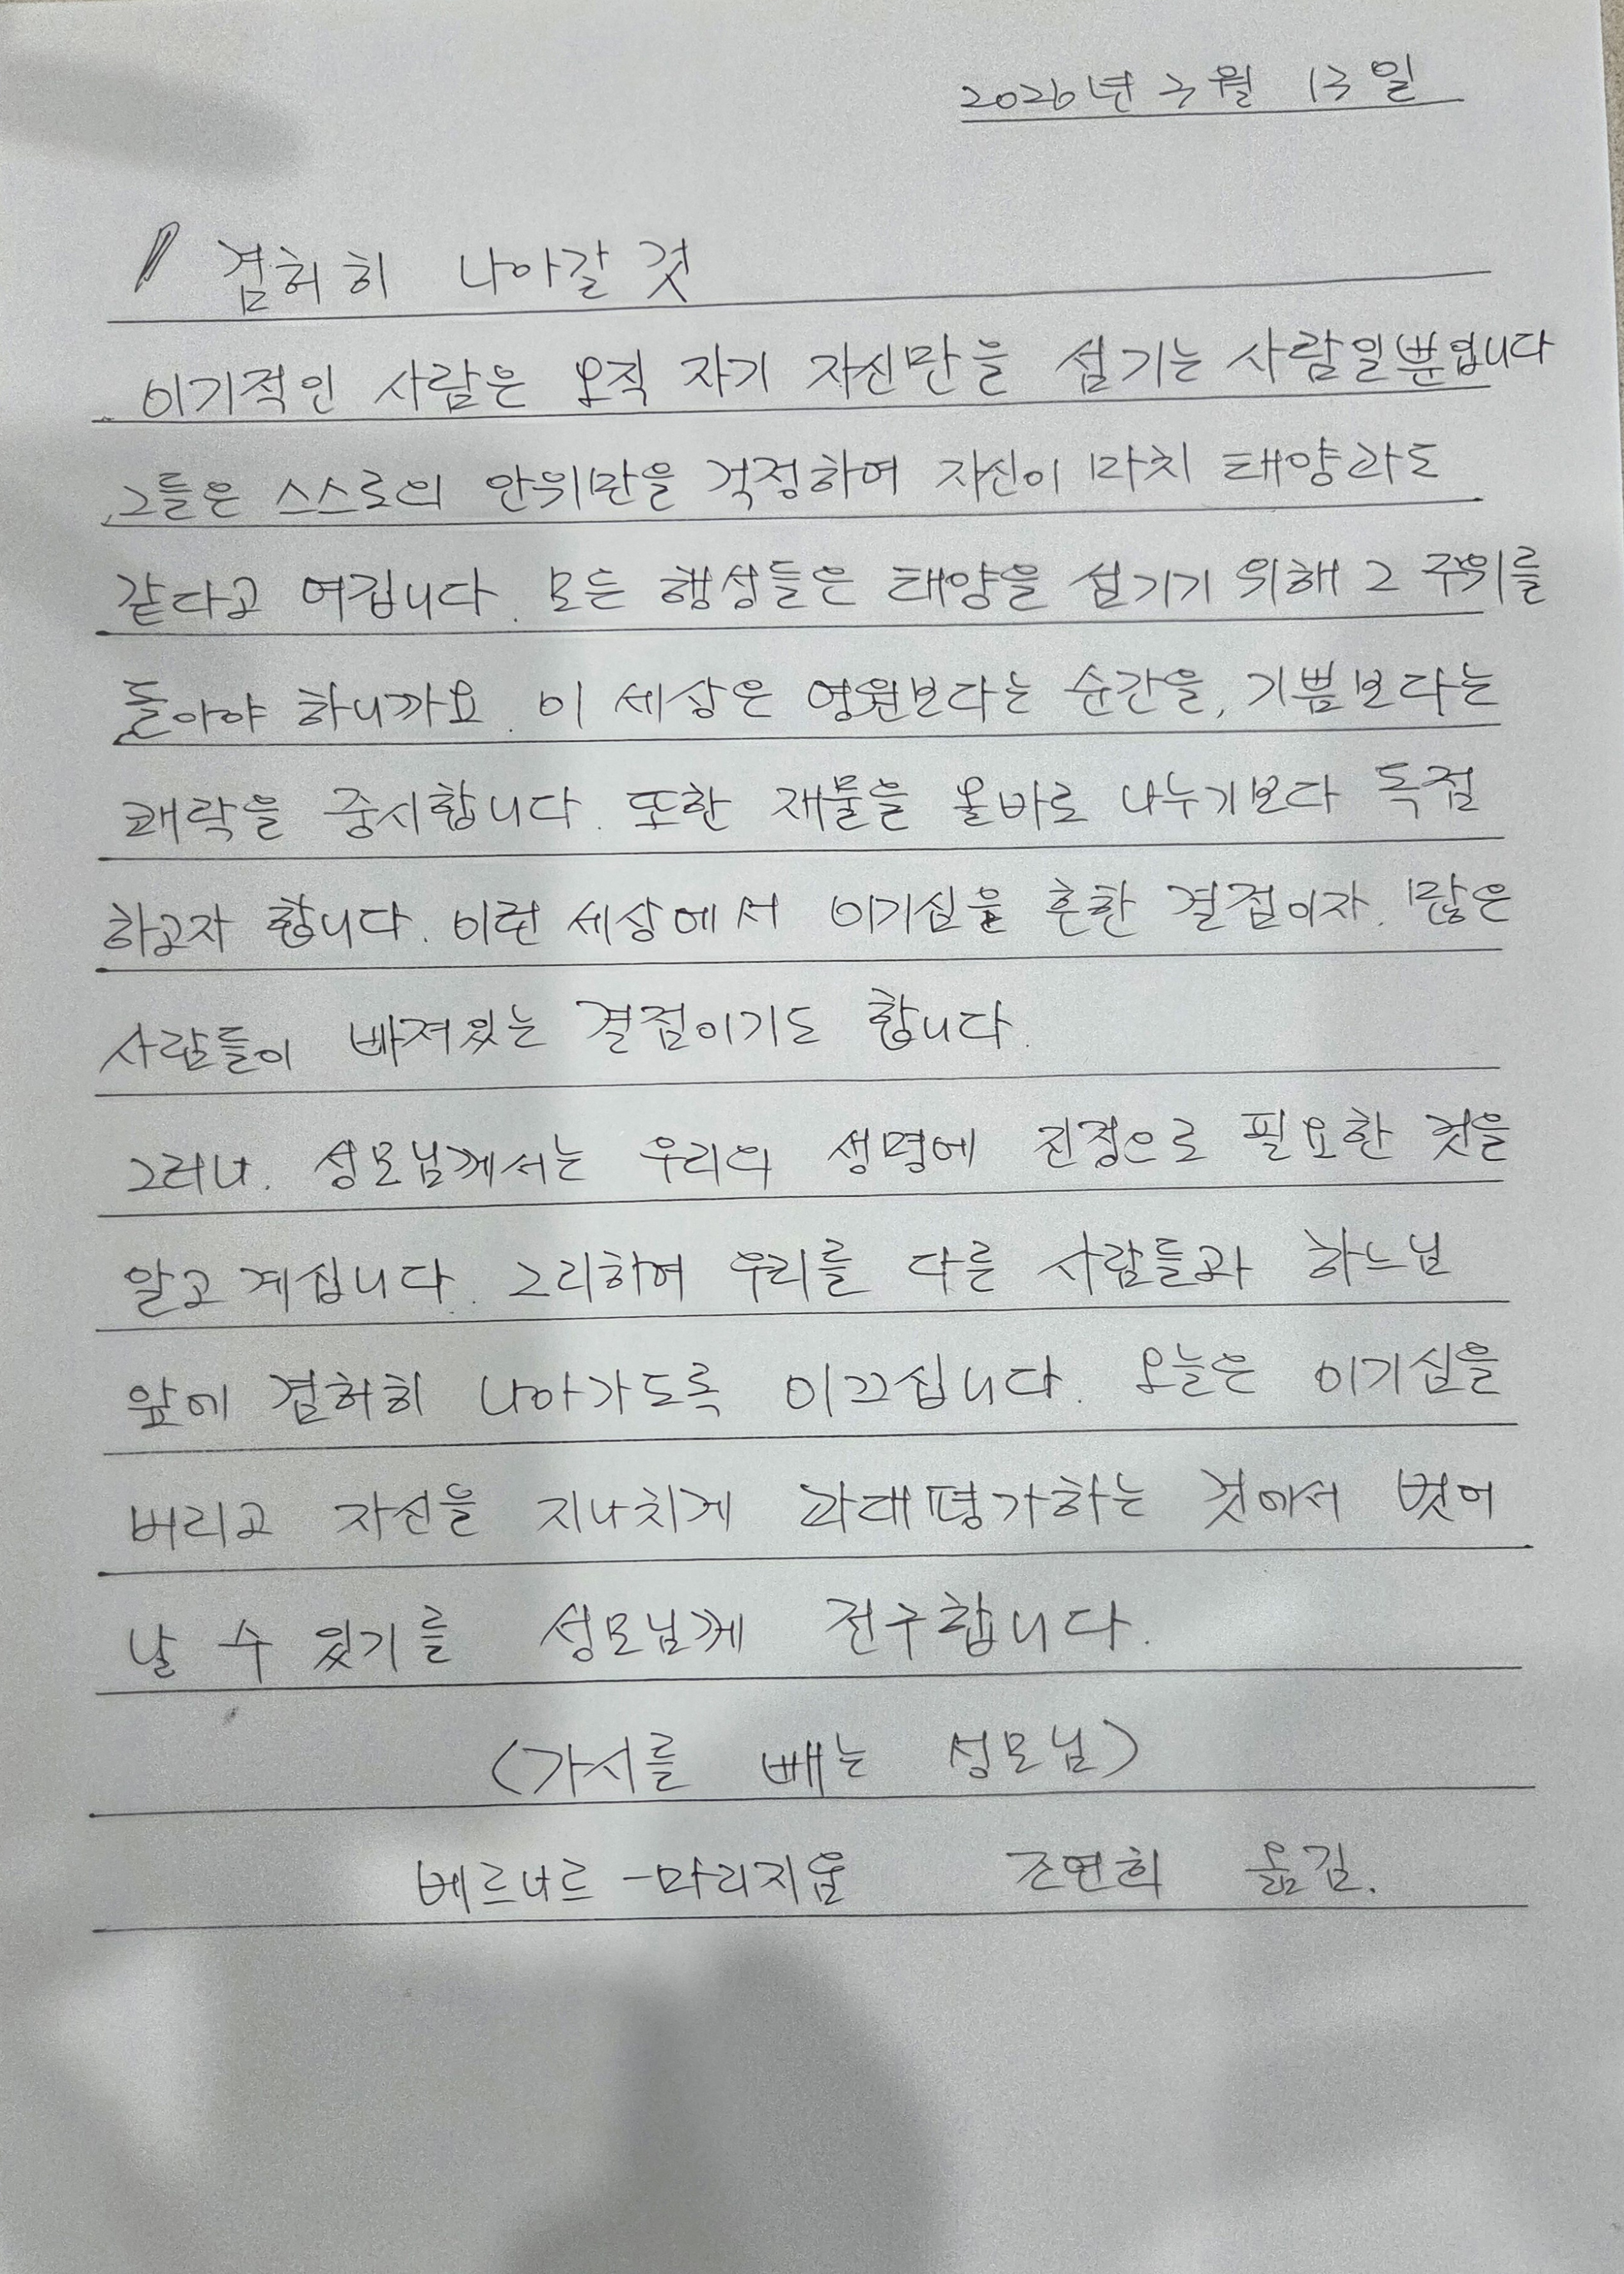 2026년 3월 13일
겸허히 나아갈 것
이기적인 사람은 오직 자기 자신만을 섬기는 사람일뿐입니다
그들은 스스로의 안위만을 걱정하여 자신이 마치 태양라도
같다고 여깁니다. 모든 행성들은 태양을 섬기기 위해 그 주위를
돌아야 하니까요. 이 세상은 영원보다는 순간을, 기쁨보다는
쾌락을 중시합니다. 또한 재물을 올바로 나누기보다 독점
하고자 합니다. 이런 세상에서 이기심을 흔한 결점이자. 많은
사람들이 빠져있는 결점이기도 합니다.
그러나. 성모님께서는 우리의 생명에 진정으로 필요한 것을
알고 계십니다. 그리하여 우리를 다른 사람들과 하느님
앞에 겸허히 나아가도록 이끄십니다. 오늘은 이기심을
버리고 자신을 지나치게 과대평가하는 것에서 벗어
날 수 있기를 성모님께 전구합니다.
(가시를 빼는 성모님)
베르나르-마리지옴 조연희 옮김.